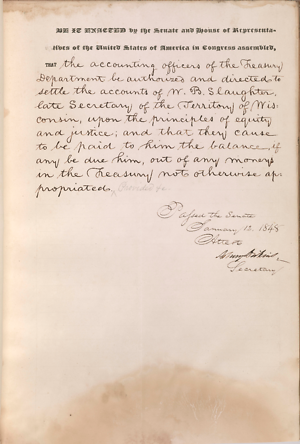 BE IT ENACTED by the Senate and House of Representa-
tives of the United States of America in Congress assembled,
THAT the accounting officers of the Treasury
Department be authorized and directed to
settle the accounts of W. B. Slaughter,
late Secretary of the Territory of Wis-
consin, upon the principles of equity
and justice; and that they cause
to be paid to him the balance, if
any be due him, out of any money
in the Treasury not otherwise ap-
propriated.
Passed the Senate
January 12, 1848
Attest
Secretary